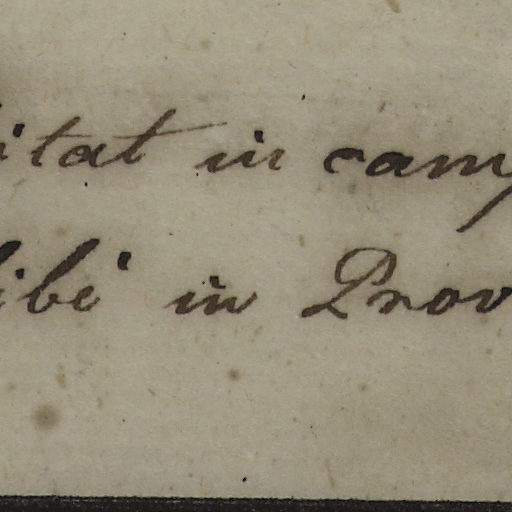 itat in camp
libi in Prov